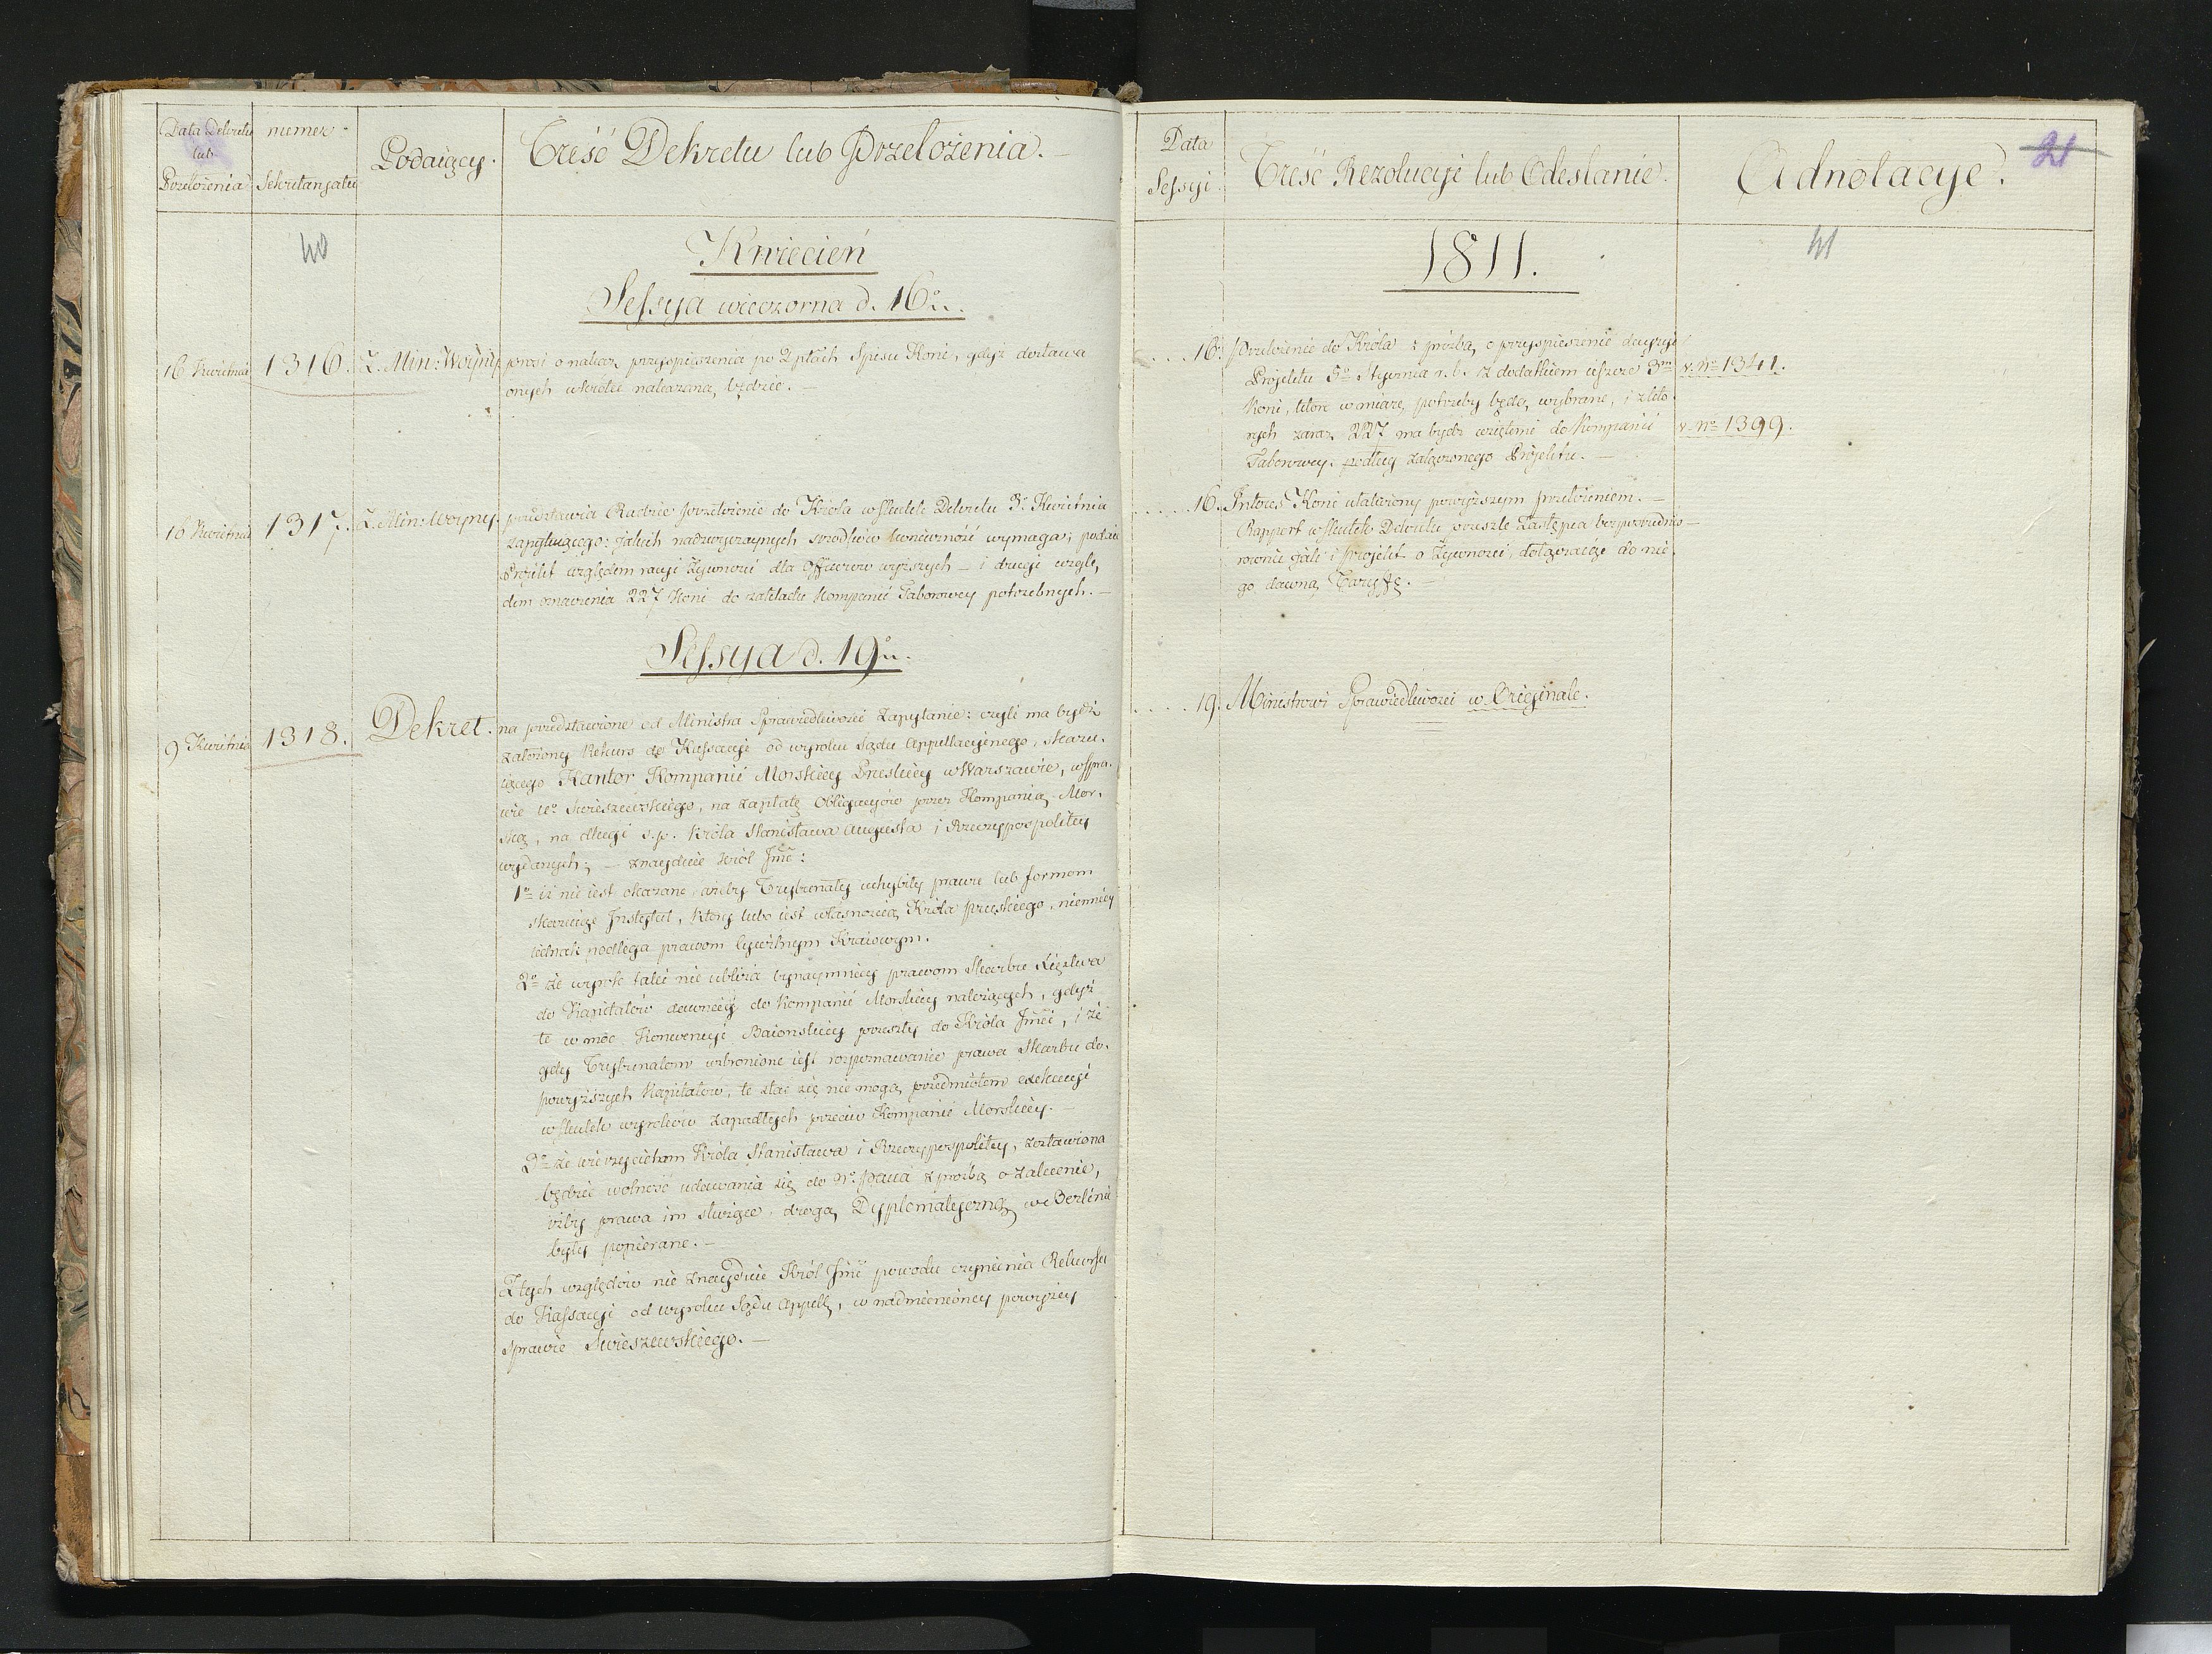 Data Dekretu
lub
Przełożenia
numer
Sekretaryatu
Podaiący.
Treść Dekretu lub Przełożenia.
40
Kwiecień
Sessya wieczorna d. 16o
16 Kwietnia 1316. Z. Min: Woyny prosi o nakaz przyspieszenia po Dptach Spisu Koni, gdyż dostawa
onych wkrótce nakazaną będzie. —
16 Kwietnia 1317. Z. Min: Woyny. przedstawia Radzie przełożenie do Króla w skutek Dekretu 3o Kwietnia
zapytuiącego: jakich nadzwyczaynych srodków konieczność wymaga; podaie
Projekt względem racyi żywności dla Officerów wyższych — i drugi wzglę,
dem oznaczenia 227 Koni do zakładu Kompanii Taborowey potrzebnych. —
Sessya d. 19o
9 Kwietnia 1318. Dekret. na przedstawione od Ministra Sprawiedliwości Zapytanie: czyli ma bydź
założony Rekurs do Kassacyi od wyroku Sądu Appellacyjnego, skazu,
iącego Kantor Kompanii Morskiey Pruskiey w Warszawie, w spra,
wie Ur. Swieszewskiego, na zapłatę Obligacyów przez Kompanią Mor,
ską, na długi s. p. Króla Stanisława Augusta i Rzeczypospolitey
wydanych; — znayduie Król Jmć:
1o iż nie iest okazane, ażeby Trybunały uchybiły prawu lub formom
skazuiąc Instytut, który lubo iest własnością Króla pruskiego, niemniey
iednak podlega prawom cywilnym Kraiowym.
2o że wyrok taki nie ubliża bynaymniey prawom Skarbu Xięstwa
do Kapitałów dawniey do Kompanii Morskiey należących, gdyż
te w moc Konwencyi Baionskiey przeszły do Króla Jmci, i że
gdy Trybunałom wzbronione iest rozpoznawanie prawa Skarbu do
powyższych Kapitałów, te stać się nie mogą przedmiotem exekucyi
w skutek wyroków zapadłych przeciw Kompanii Morskiey. —
3o że wierzycielom Króla Stanisława i Rzeczypospolitey, zostawiona
będzie wolność udawania się do N. Pana z prozbą o zalecenie,
iżby prawa im służące, drogą Dyplomatyczną w Berlinie
były popierane. —
Z tych względów nie znayduie Król Jmć powodu czynienia Rekursu
do Kassacyi od wyroku Sądu Appell, w nadmienioney powyżey
sprawie Swieszewskiego. —
Data
Sessyi.
Treść Rezolucyi lub Odesłanie.
Adnotacye.
21
1811.
41
16. Przełożenie do Króla z prozbą o przyspieszenie decyzyi
Projektu 5o Stycznia r. b. z dodatkiem ieszcze 3m v. No 1341.
Koni, które w miarę potrzeby będą wybrane, i z któ,
rych zaraz 227 ma bydź wziętemi do Kompanii v. No 1399.
Taborowey, podług załączonego Projektu. —
16. Interes Koni ułatwiony powyższym przełożeniem. —
Rapport w skutek Dekretu przeszle Zastępca bezpośrednio —
rownie jak i projekt o Żywności, dołączaiąc do nie,
go dawną Taryffę. —
19. Ministrowi Sprawiedliwości w Oryginale.